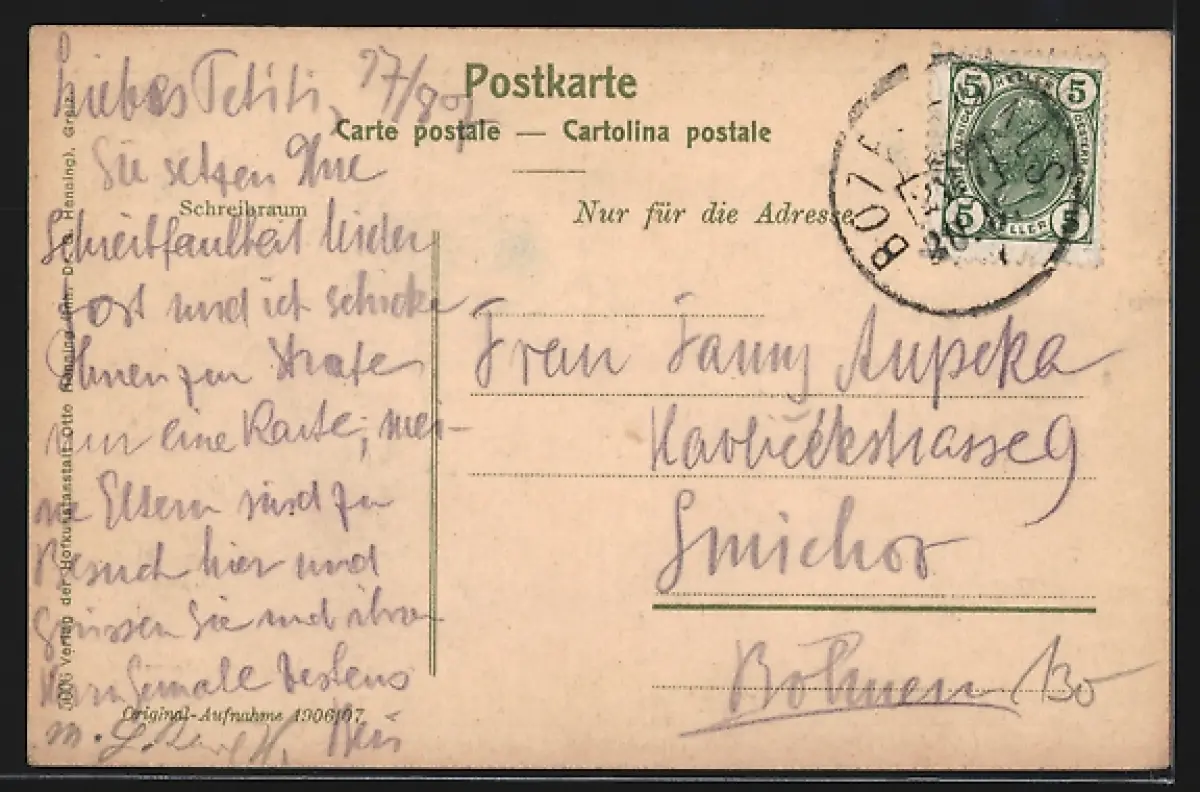 Postkarte
Carte postale — Cartolina postale
Schreibraum
Nur für die Adresse
Liebes Tetiti, 27/8 07
Sie setzen Ihre
Schreibfaulheit leider
fort und ich schicke
Ihnen zur Strafe
nur eine Karte; mei-
ne Eltern sind zu
Besuch hier und
grüssen Sie und ihren
Herrn Gemahl bestens
m.
Frau Fanny Aupeka
Havlíčekstrasse 9
Smichov
Böhmen
BOZ
5 HELLER 5
5 HELLER 5
Verlag der Hofkunstanstalt Otto Henning
Original-Aufnahme 1906/07